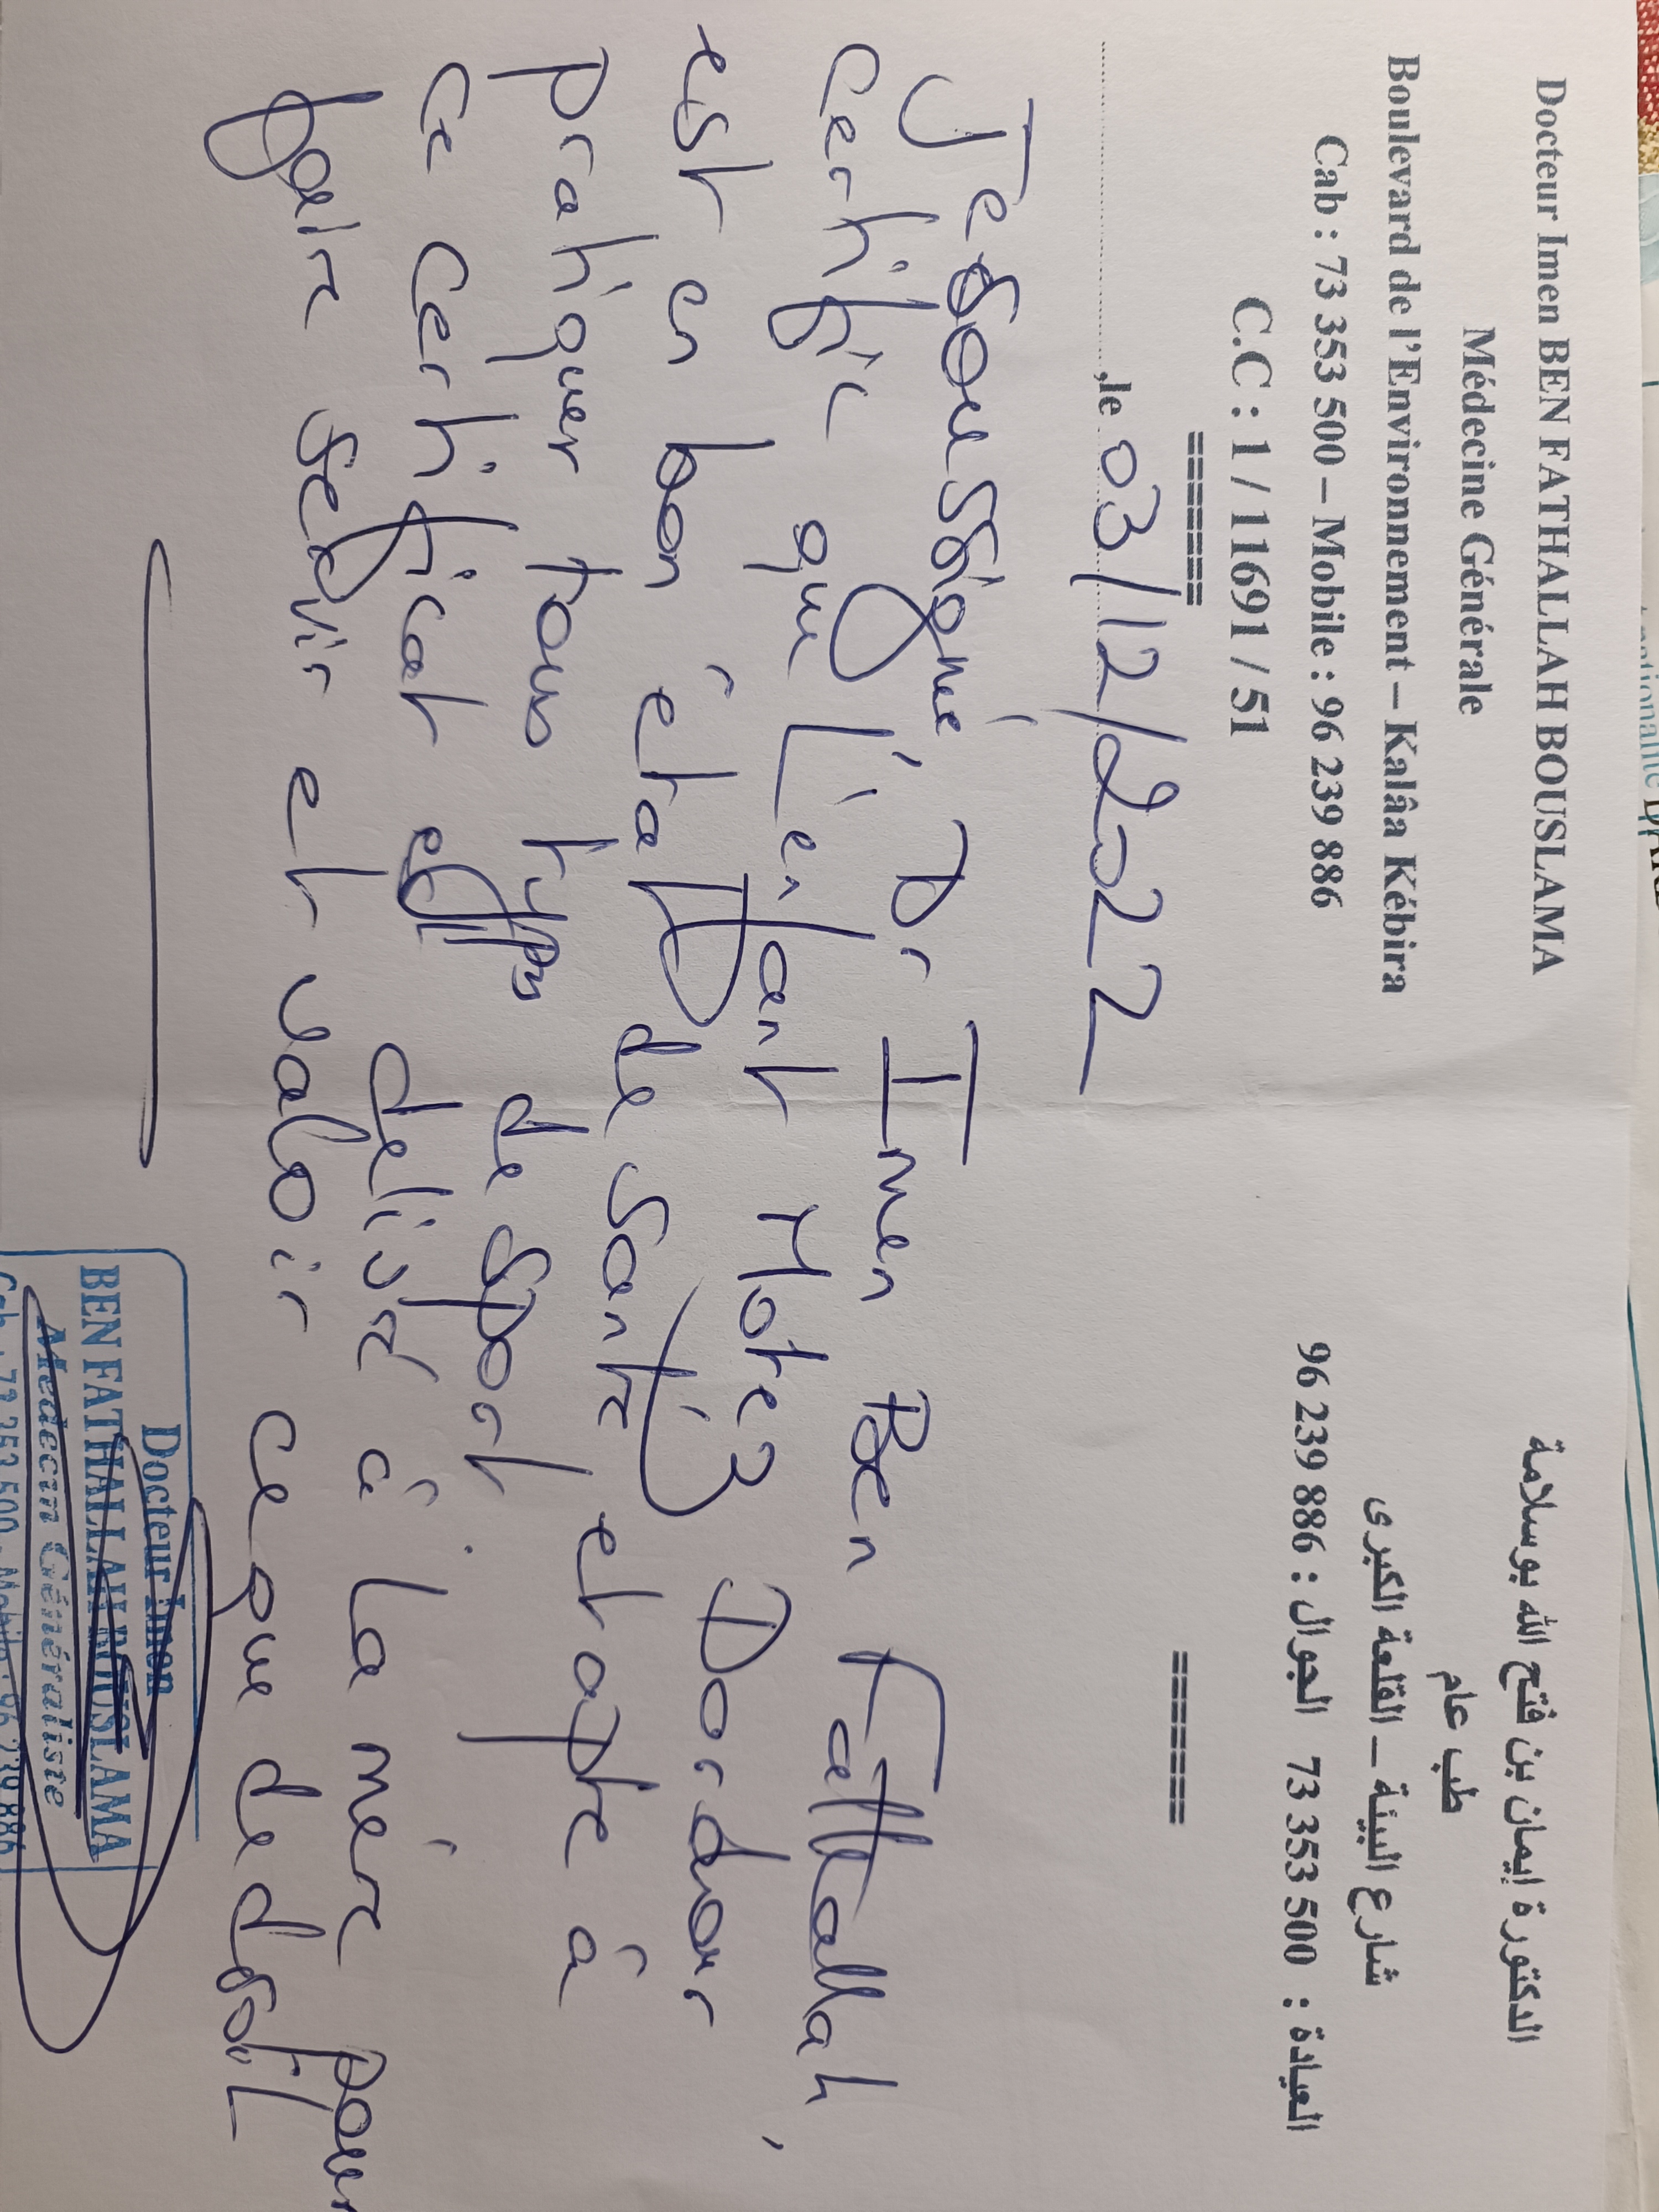 Docteur Imen BEN FATHALLAH BOUSLAMA
Médecine Générale
Boulevard de l'Environnement – Kalâa Kébira
Cab : 73 353 500 – Mobile : 96 239 886
C.C : 1 / 11691 / 51
=======
الدكتورة إيمان بن فتح الله بوسلامة
طب عام
شارع البيئة – القلعة الكبرى
العيادة : 73 353 500 الجوال : 96 239 886
=======
,le 03/12/2022
Je soussigné Dr Imen Ben Fathallah,
certifie que L'enfant Motez Dardour
est en bon état de santé et apte à
pratiquer tous types de sport.
ce certificat est délivré à la mère pour
faire servir et valoir ce que de droit
Docteur Imen
BEN FATHALLAH BOUSLAMA
Médecin Généraliste
Cab : 73 353 500 - Mobile : 96 239 886